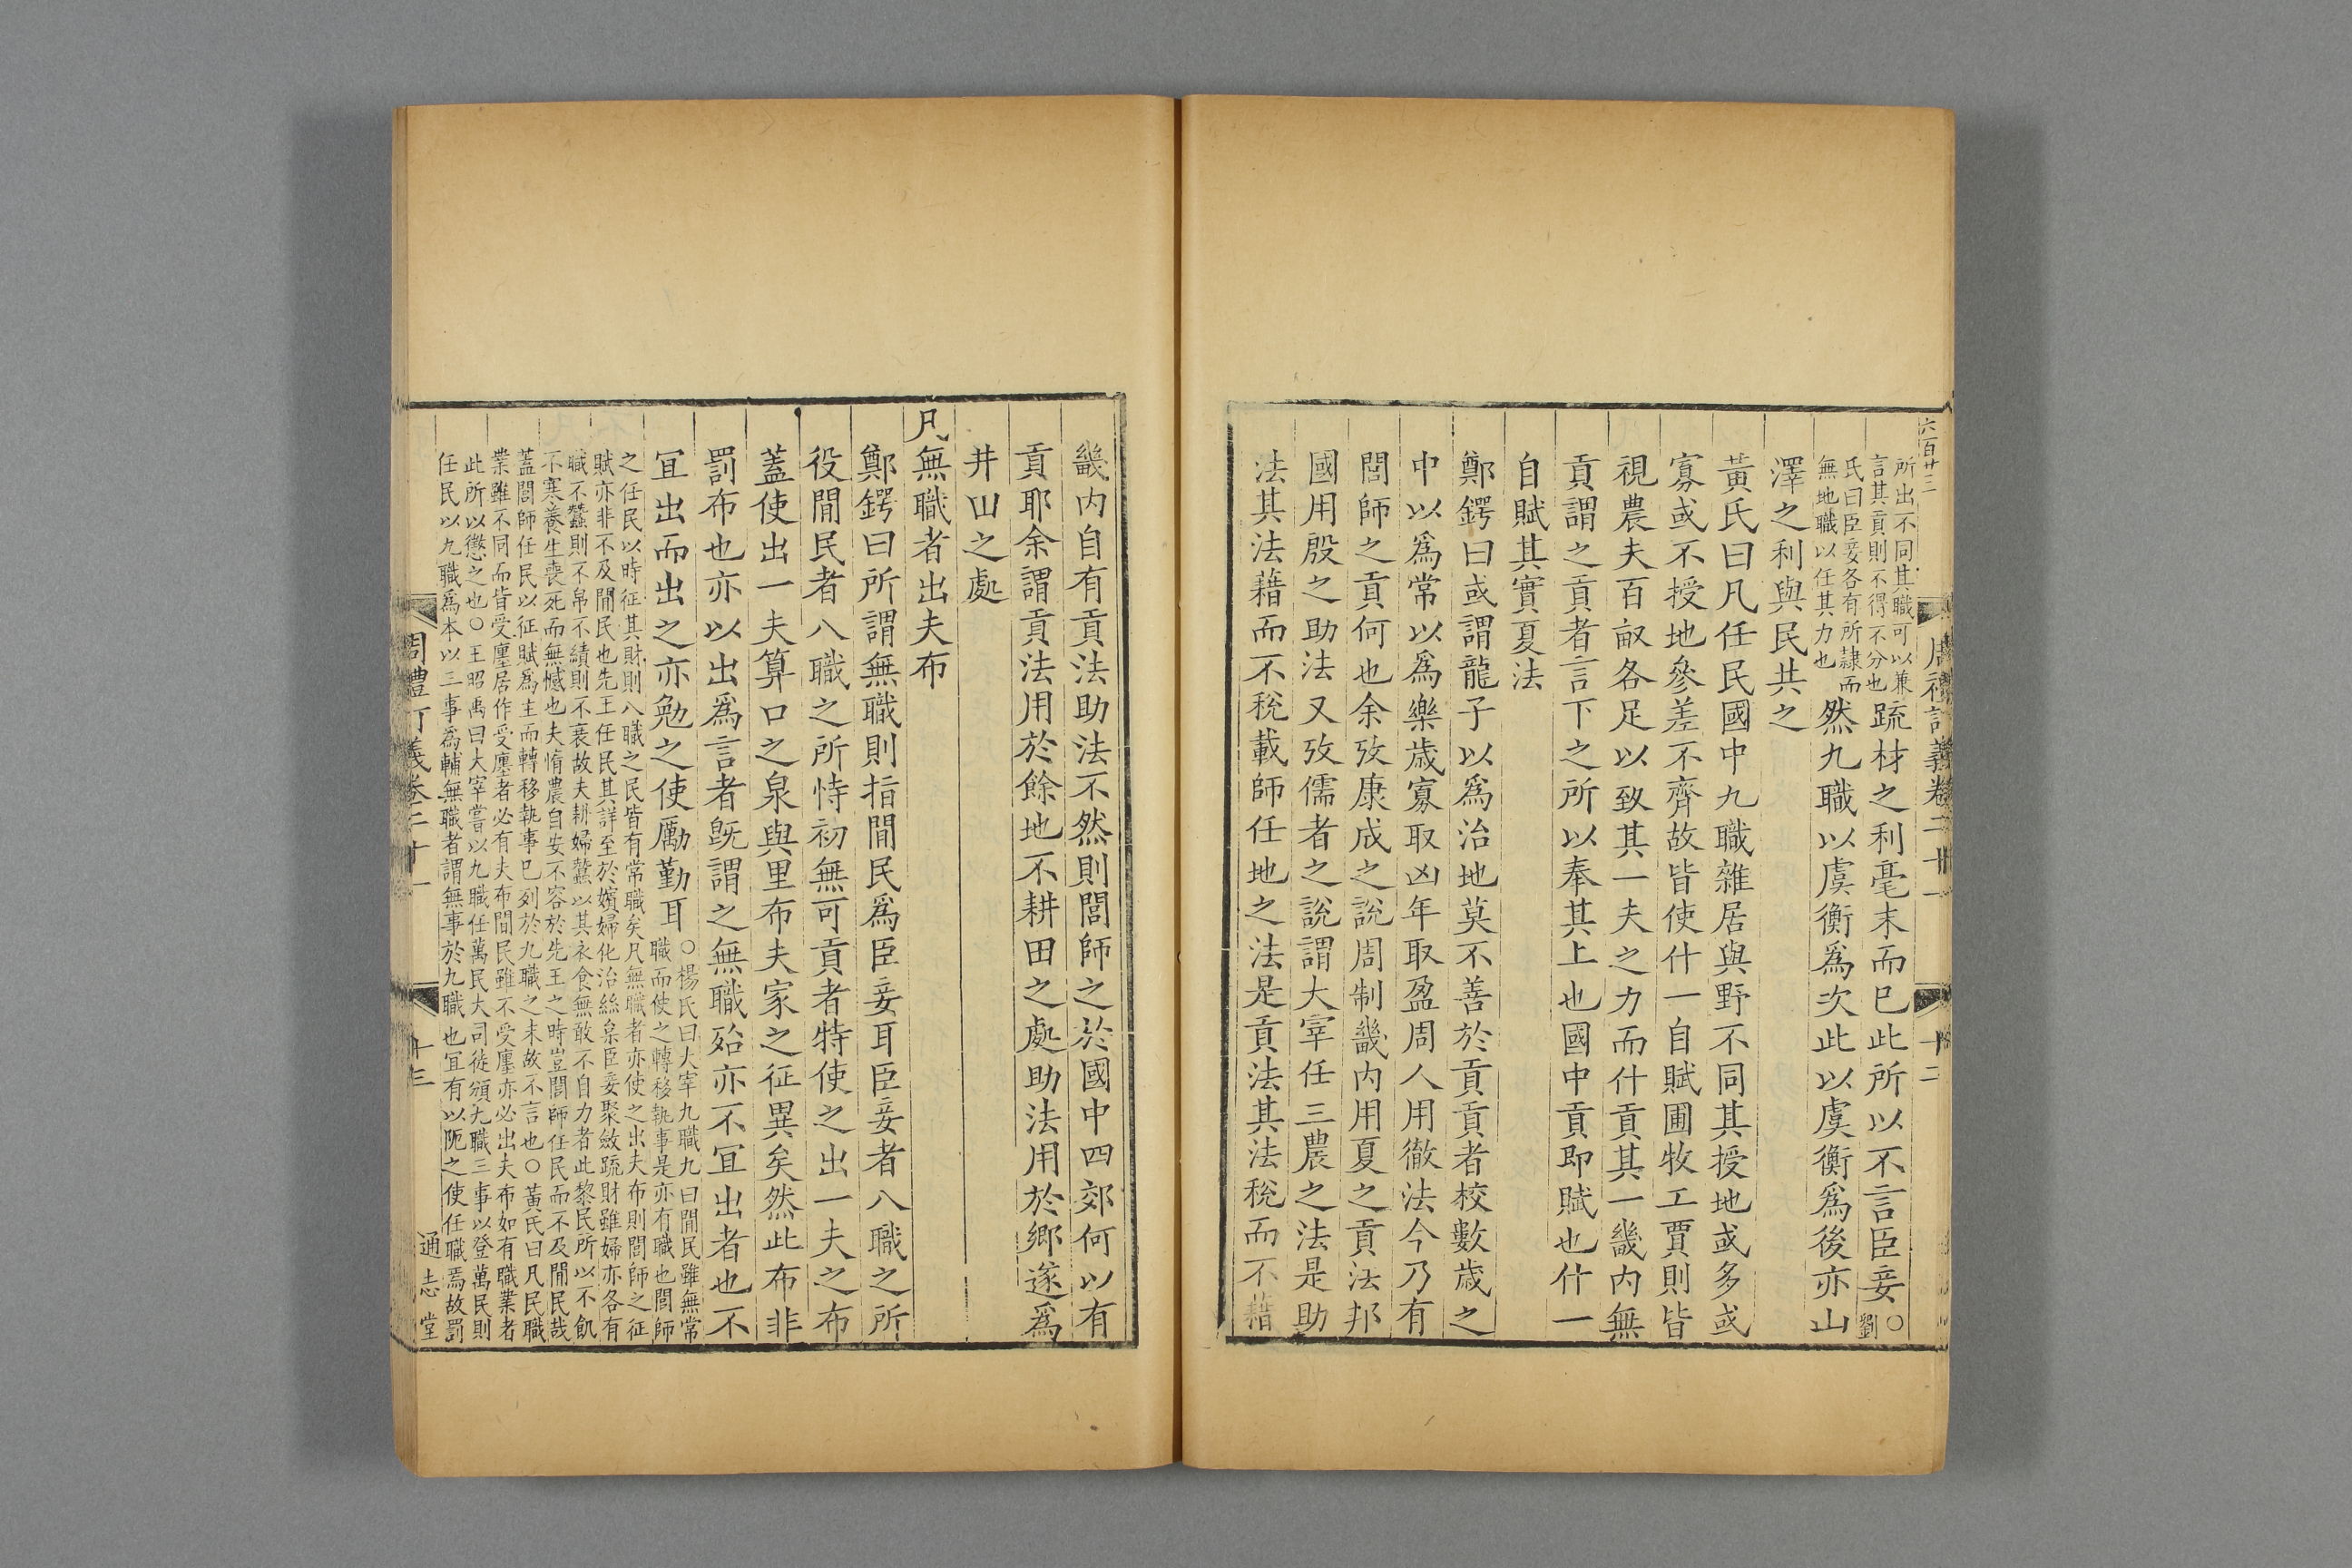 六百廿三
周禮訂義卷二十一
十二
所出不同其職可以兼
言其貢則不得不分也
疏材之利毫末而巳此所以不言臣妾
○
劉
氏曰臣妾各有所隷而
無地職以任其力也
然九職以虞衡爲次此以虞衡爲後亦山
澤之利與民共之
黃氏曰凡任民國中九職雜居與野不同其授地或多或
寡或不授地參差不齊故皆使什一自賦圃牧工賈則皆
視農夫百畝各足以致其一夫之力而什貢其一畿内無
貢謂之貢者言下之所以奉其上也國中貢即賦也什一
自賦其實夏法
鄭鍔曰或謂龍子以爲治地莫不善於貢貢者校數歲之
中以爲常以爲樂歲寡取凶年取盈周人用徹法今乃有
閭師之貢何也余攷康成之說周制畿内用夏之貢法邦
國用殷之助法又攷儒者之說謂大宰任三農之法是助
法其法藉而不稅載師任地之法是貢法其法稅而不藉
畿内自有貢法助法不然則閭師之於國中四郊何以有
貢耶余謂貢法用於餘地不耕田之處助法用於鄉遂爲
井田之處
凡無職者出夫布
鄭鍔曰所謂無職則指閒民爲臣妾耳臣妾者八職之所
役閒民者八職之所恃初無可貢者特使之出一夫之布
蓋使出一夫算口之泉與里布夫家之征異矣然此布非
罰布也亦以出爲言者旣謂之無職殆亦不宜出者也不
宜出而出之亦勉之使勵勤耳
○楊氏曰大宰九職九曰閒民雖無常
職而使之轉移執事是亦有職也閭師
之任民以時征其財則八職之民皆有常職矣凡無職者亦使之出夫布則閭師之征
賦亦非不及閒民也先王任民其詳至於嬪婦化治絲枲臣妾聚斂疏財雖婦亦各有
職不蠶則不帛不績則不衰故夫耕婦蠶以其衣食無敢不自力者此黎民所以不飢
不寒養生喪死而無憾也夫惰農自安不容於先王之時豈閭師任民而不及閒民哉
蓋閭師任民以征賦爲主而轉移執事巳列於九職之末故不言也○黃氏曰凡民職
業雖不同而皆受廛居作受廛者必有夫布閒民雖不受廛亦必出夫布如有職業者
此所以懲之也○王昭禹曰大宰嘗以九職任萬民大司徒頒九職三事以登萬民則
任民以九職爲本以三事爲輔無職者謂無事於九職也宜有以阨之使任職焉故罰
周禮訂義卷二十一
十三
通志堂